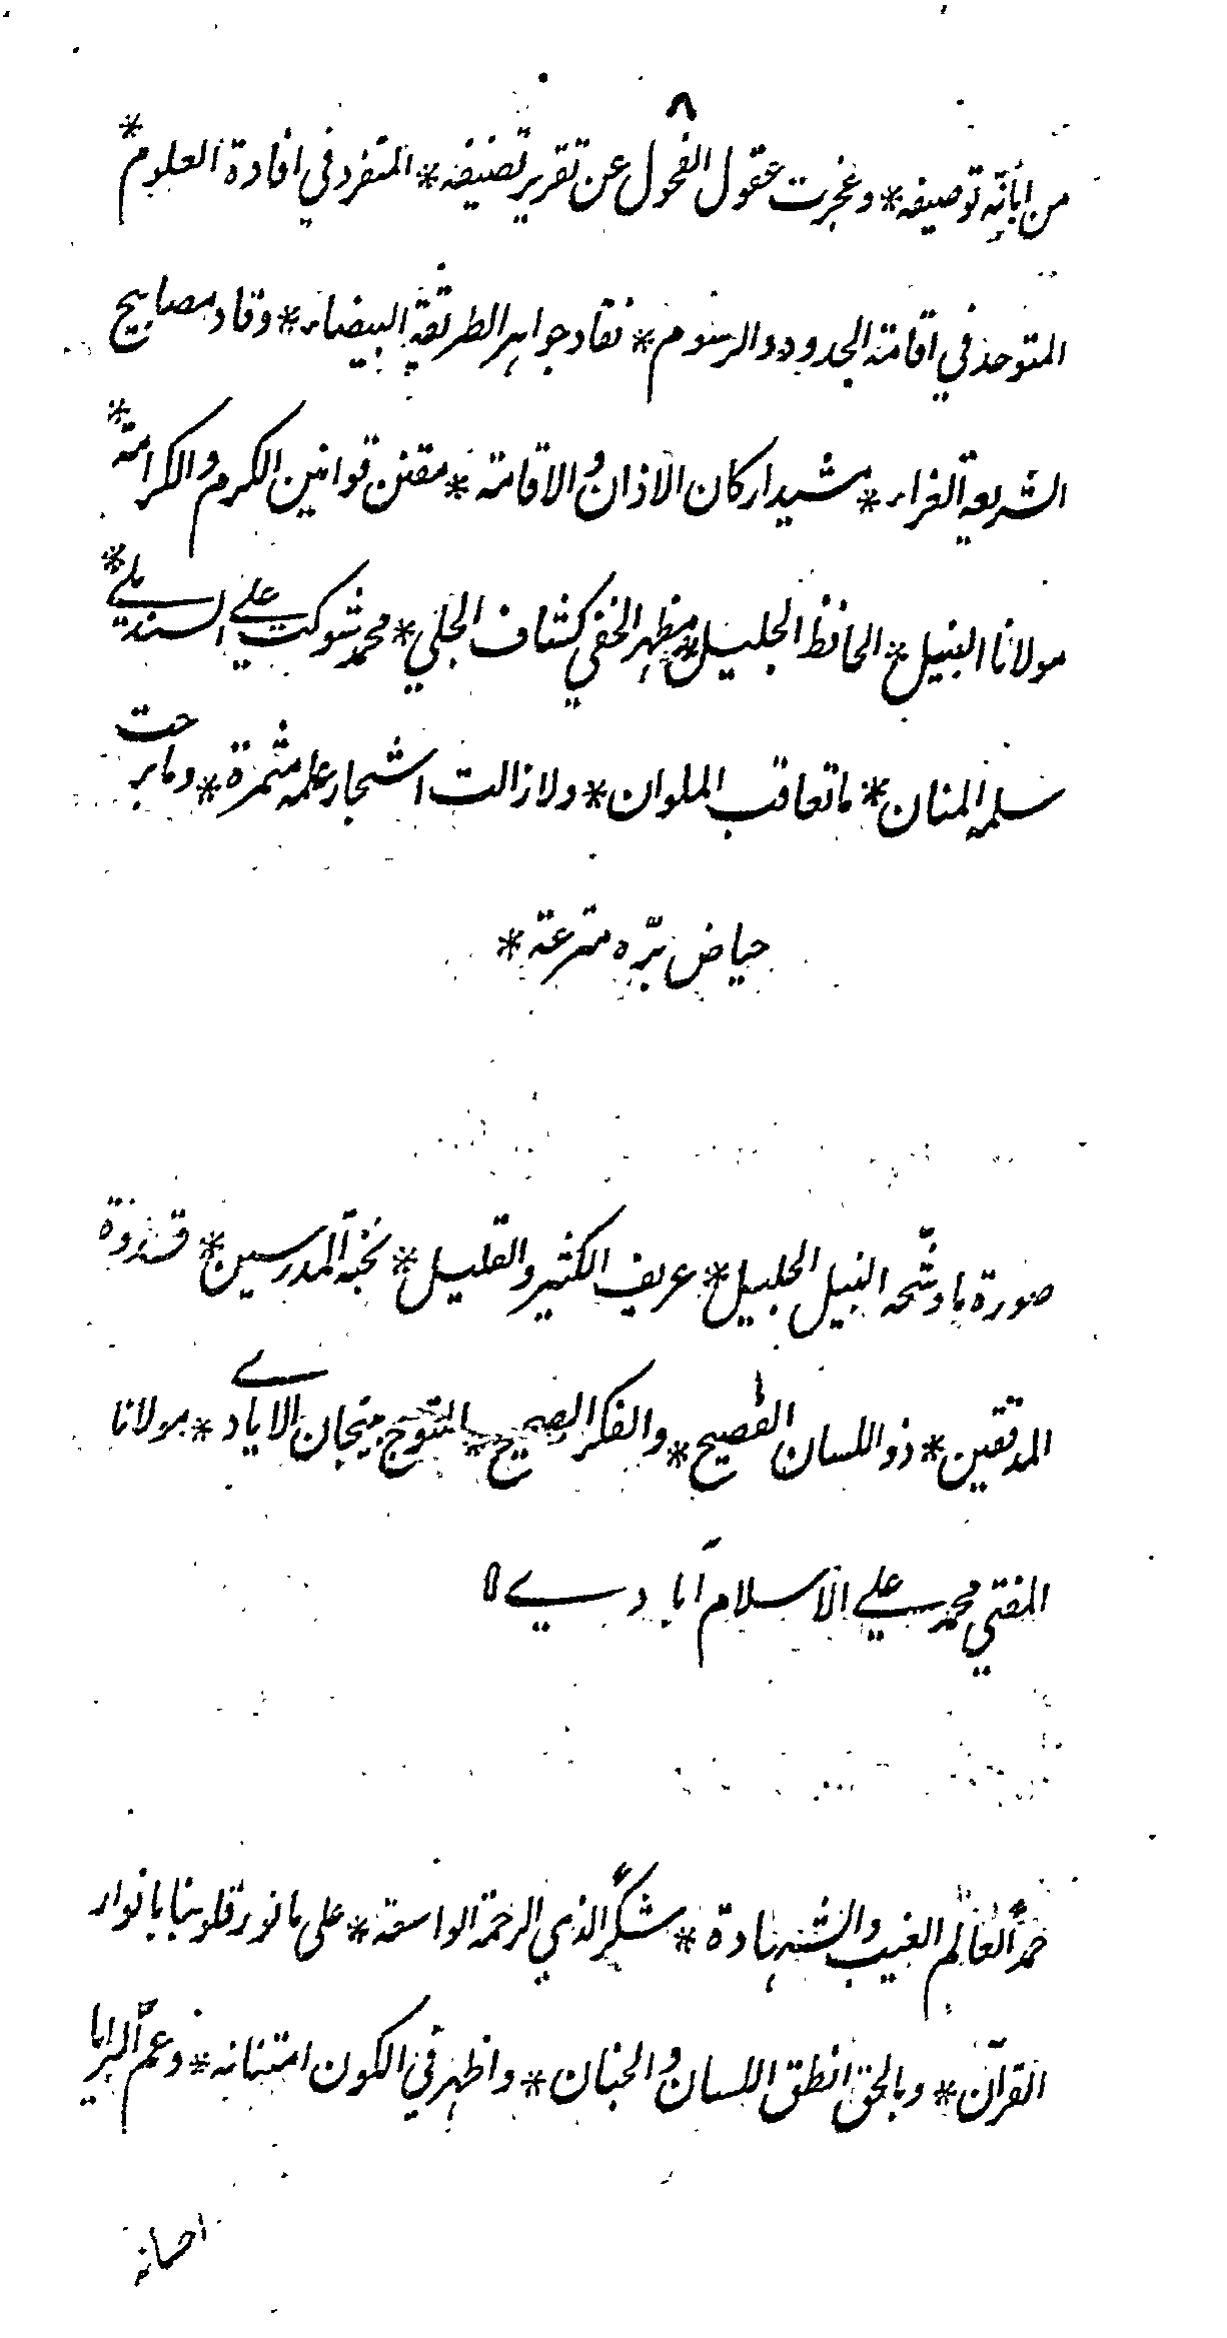 من ابانة توصيفه * وعجزت عقول الفحول عن تقرير تصنيفه * المتفرد في افادة العلوم *
المتوحد في اقامة الحدود والرسوم * نقاد جواهر الطريقة البيضاء * وقاد مصابيح
الشريعة الغراء * مشيد اركان الاذان والاقامة * مقنن قوانين الكرم والكرامة *
مولانا النبيل * الحافظ الجليل * مظهر الخفي كشاف الجلي * محمد شوكت علي السنديلي *
سلمه المنان * ما تعاقب الملوان * ولا زالت اشجار علمه مثمرة * وما برحت
حياض برّه مترعة *
صورة ما وشّحه النبيل الجليل * عريف الكثير والقليل * نخبة المدرسين * قدوة
المدققين * ذو اللسان الفصيح * والفكر الصحيح * المتوج بتيجان الايادے * مولانا
المفتي محمد علي الاسلام آبادے
حمدًا لعالم الغيب والشهادة * شكرًا لذي الرحمة الواسعة * على ما نور قلوبنا بانوار
القرآن * وبالحق انطق اللسان والجنان * واظهر في الكون امتنانه * وعم البرايا
احسانه